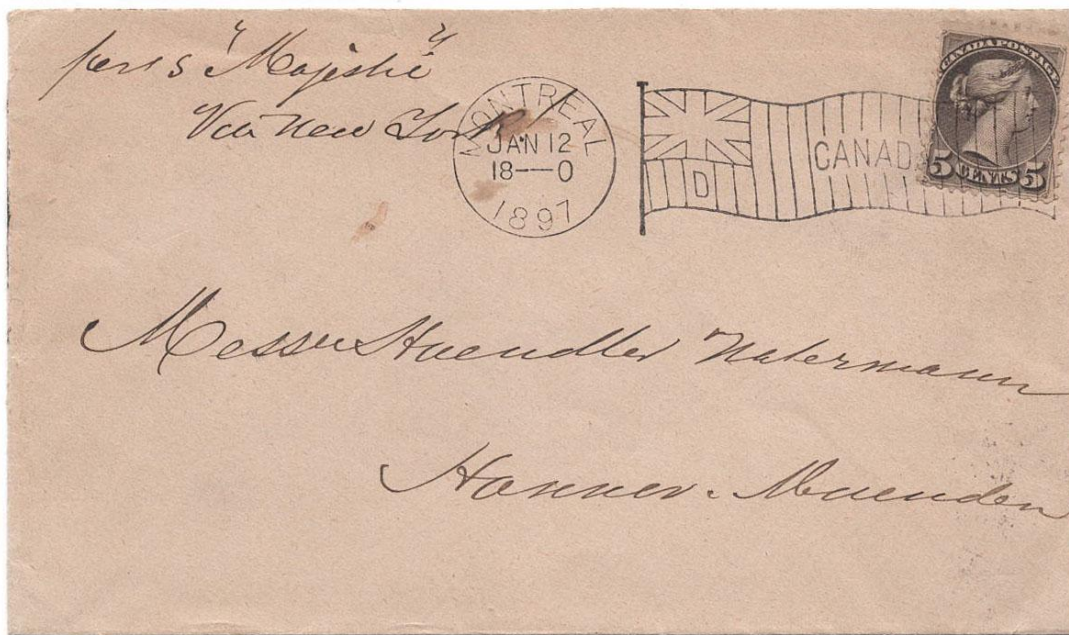 per SS "Majestic"
Via New York
MONTREAL
JAN 12
18—0
1897
D
CANAD
CANADA POSTAGE
5 CENTS 5
Messrs Haendler Natermann
Hannov. Muenden